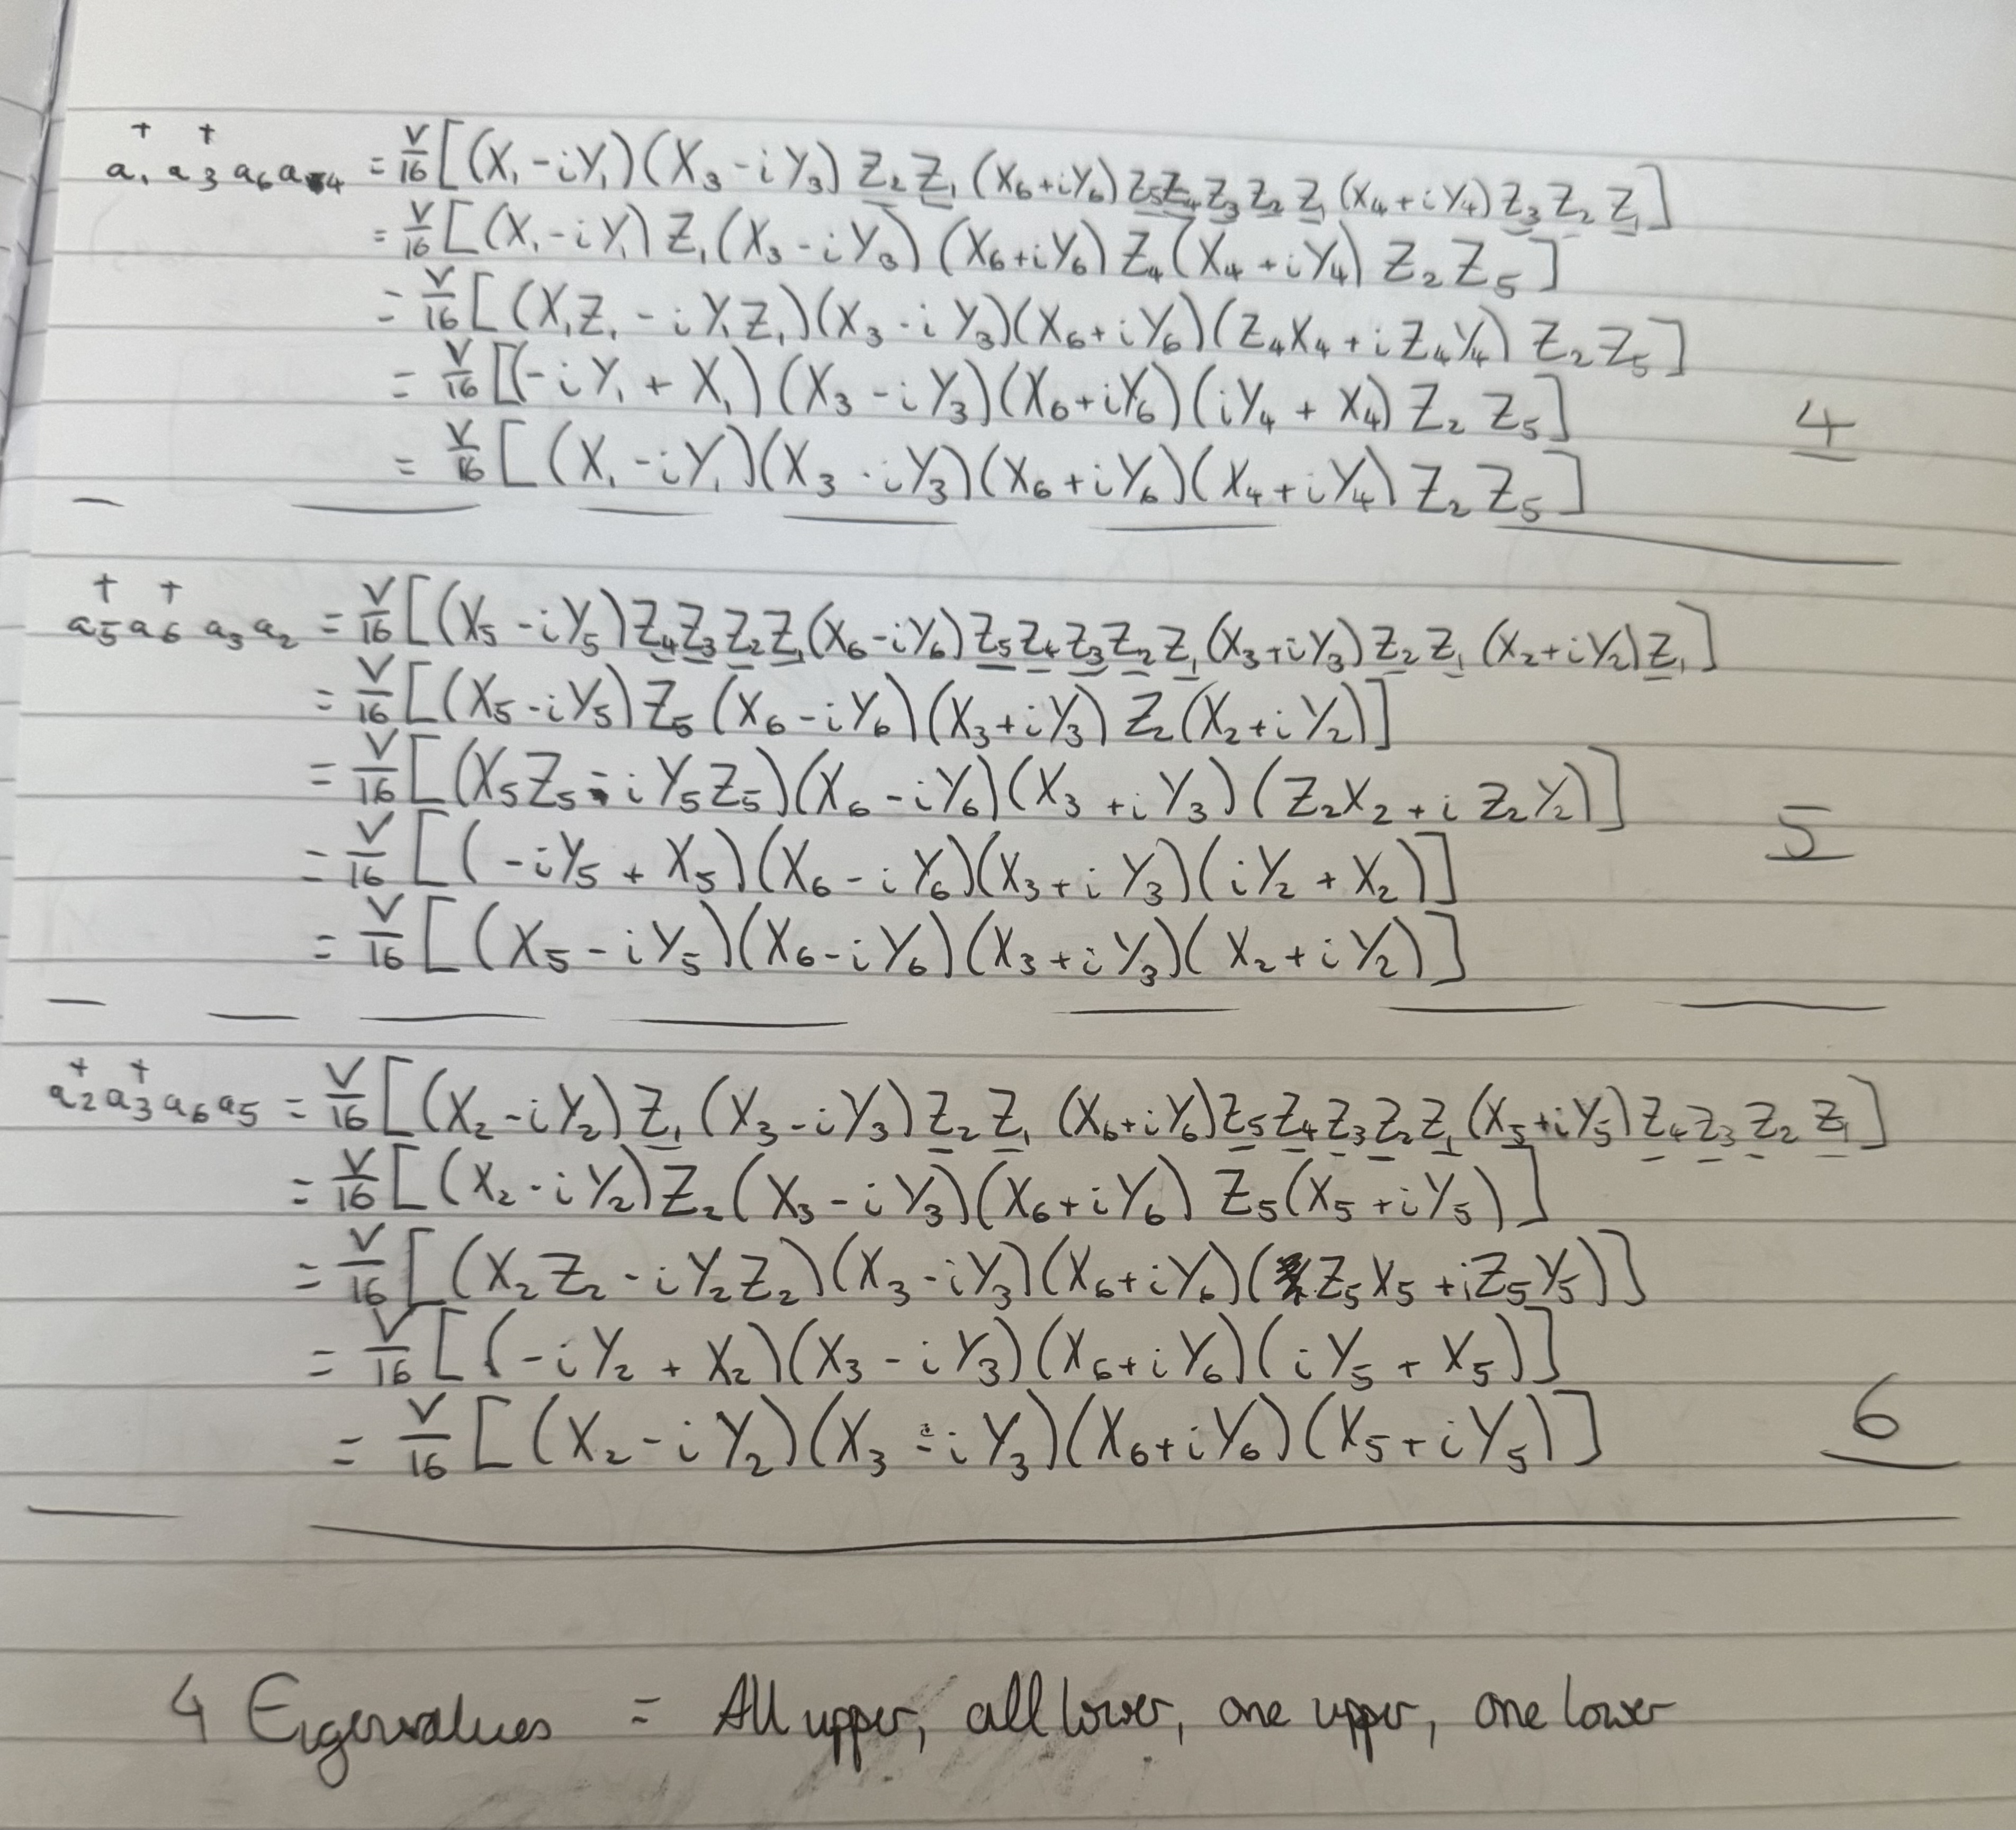 a₁† a₃† a₆ a₄ = V/16 [(X₁ - iY₁)(X₃ - iY₃) Z₂ Z₁ (X₆ + iY₆) Z₅ Z₄ Z₃ Z₂ Z₁ (X₄ + iY₄) Z₃ Z₂ Z₁]
= V/16 [(X₁ - iY₁) Z₁ (X₃ - iY₃) (X₆ + iY₆) Z₄ (X₄ + iY₄) Z₂ Z₅]
= V/16 [(X₁Z₁ - iY₁Z₁)(X₃ - iY₃)(X₆ + iY₆)(Z₄X₄ + iZ₄Y₄) Z₂ Z₅]
= V/16 [(-iY₁ + X₁)(X₃ - iY₃)(X₆ + iY₆)(iY₄ + X₄) Z₂ Z₅]
4
= V/16 [(X₁ - iY₁)(X₃ - iY₃)(X₆ + iY₆)(X₄ + iY₄) Z₂ Z₅]
a₅† a₆† a₃ a₂ = V/16 [(X₅ - iY₅) Z₄ Z₃ Z₂ Z₁ (X₆ - iY₆) Z₅ Z₄ Z₃ Z₂ Z₁ (X₃ + iY₃) Z₂ Z₁ (X₂ + iY₂) Z₁]
= V/16 [(X₅ - iY₅) Z₅ (X₆ - iY₆)(X₃ + iY₃) Z₂ (X₂ + iY₂)]
= V/16 [(X₅Z₅ - iY₅Z₅)(X₆ - iY₆)(X₃ + iY₃)(Z₂X₂ + iZ₂Y₂)]
5
= V/16 [(-iY₅ + X₅)(X₆ - iY₆)(X₃ + iY₃)(iY₂ + X₂)]
= V/16 [(X₅ - iY₅)(X₆ - iY₆)(X₃ + iY₃)(X₂ + iY₂)]
a₂† a₃† a₆ a₅ = V/16 [(X₂ - iY₂) Z₁ (X₃ - iY₃) Z₂ Z₁ (X₆ + iY₆) Z₅ Z₄ Z₃ Z₂ Z₁ (X₅ + iY₅) Z₄ Z₃ Z₂ Z₁]
= V/16 [(X₂ - iY₂) Z₂ (X₃ - iY₃)(X₆ + iY₆) Z₅ (X₅ + iY₅)]
= V/16 [(X₂Z₂ - iY₂Z₂)(X₃ - iY₃)(X₆ + iY₆)(Z₅X₅ + iZ₅Y₅)]
= V/16 [(-iY₂ + X₂)(X₃ - iY₃)(X₆ + iY₆)(iY₅ + X₅)]
= V/16 [(X₂ - iY₂)(X₃ - iY₃)(X₆ + iY₆)(X₅ + iY₅)]
6
4 Eigenvalues = All upper, all lower, one upper, one lower